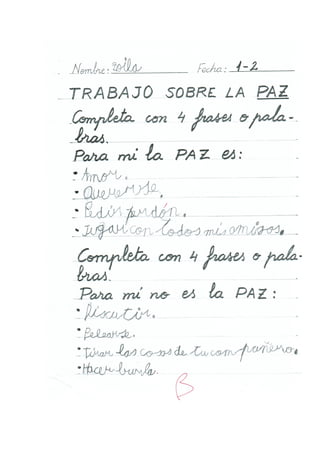 Nombre: Zoila Fecha: 1-2
TRABAJO SOBRE LA PAZ
Completa con 4 frases o pala-
bras.
Para mi la PAZ es:
• Amor.
• Quererse.
• Pedir perdón.
• Jugar con todos mis amigos.
Completa con 4 frases o pala-
bras.
Para mí no es la PAZ:
• Discutir.
• Pelearse.
• Tirar las cosas de tu compañero.
• Hacer burla.
B